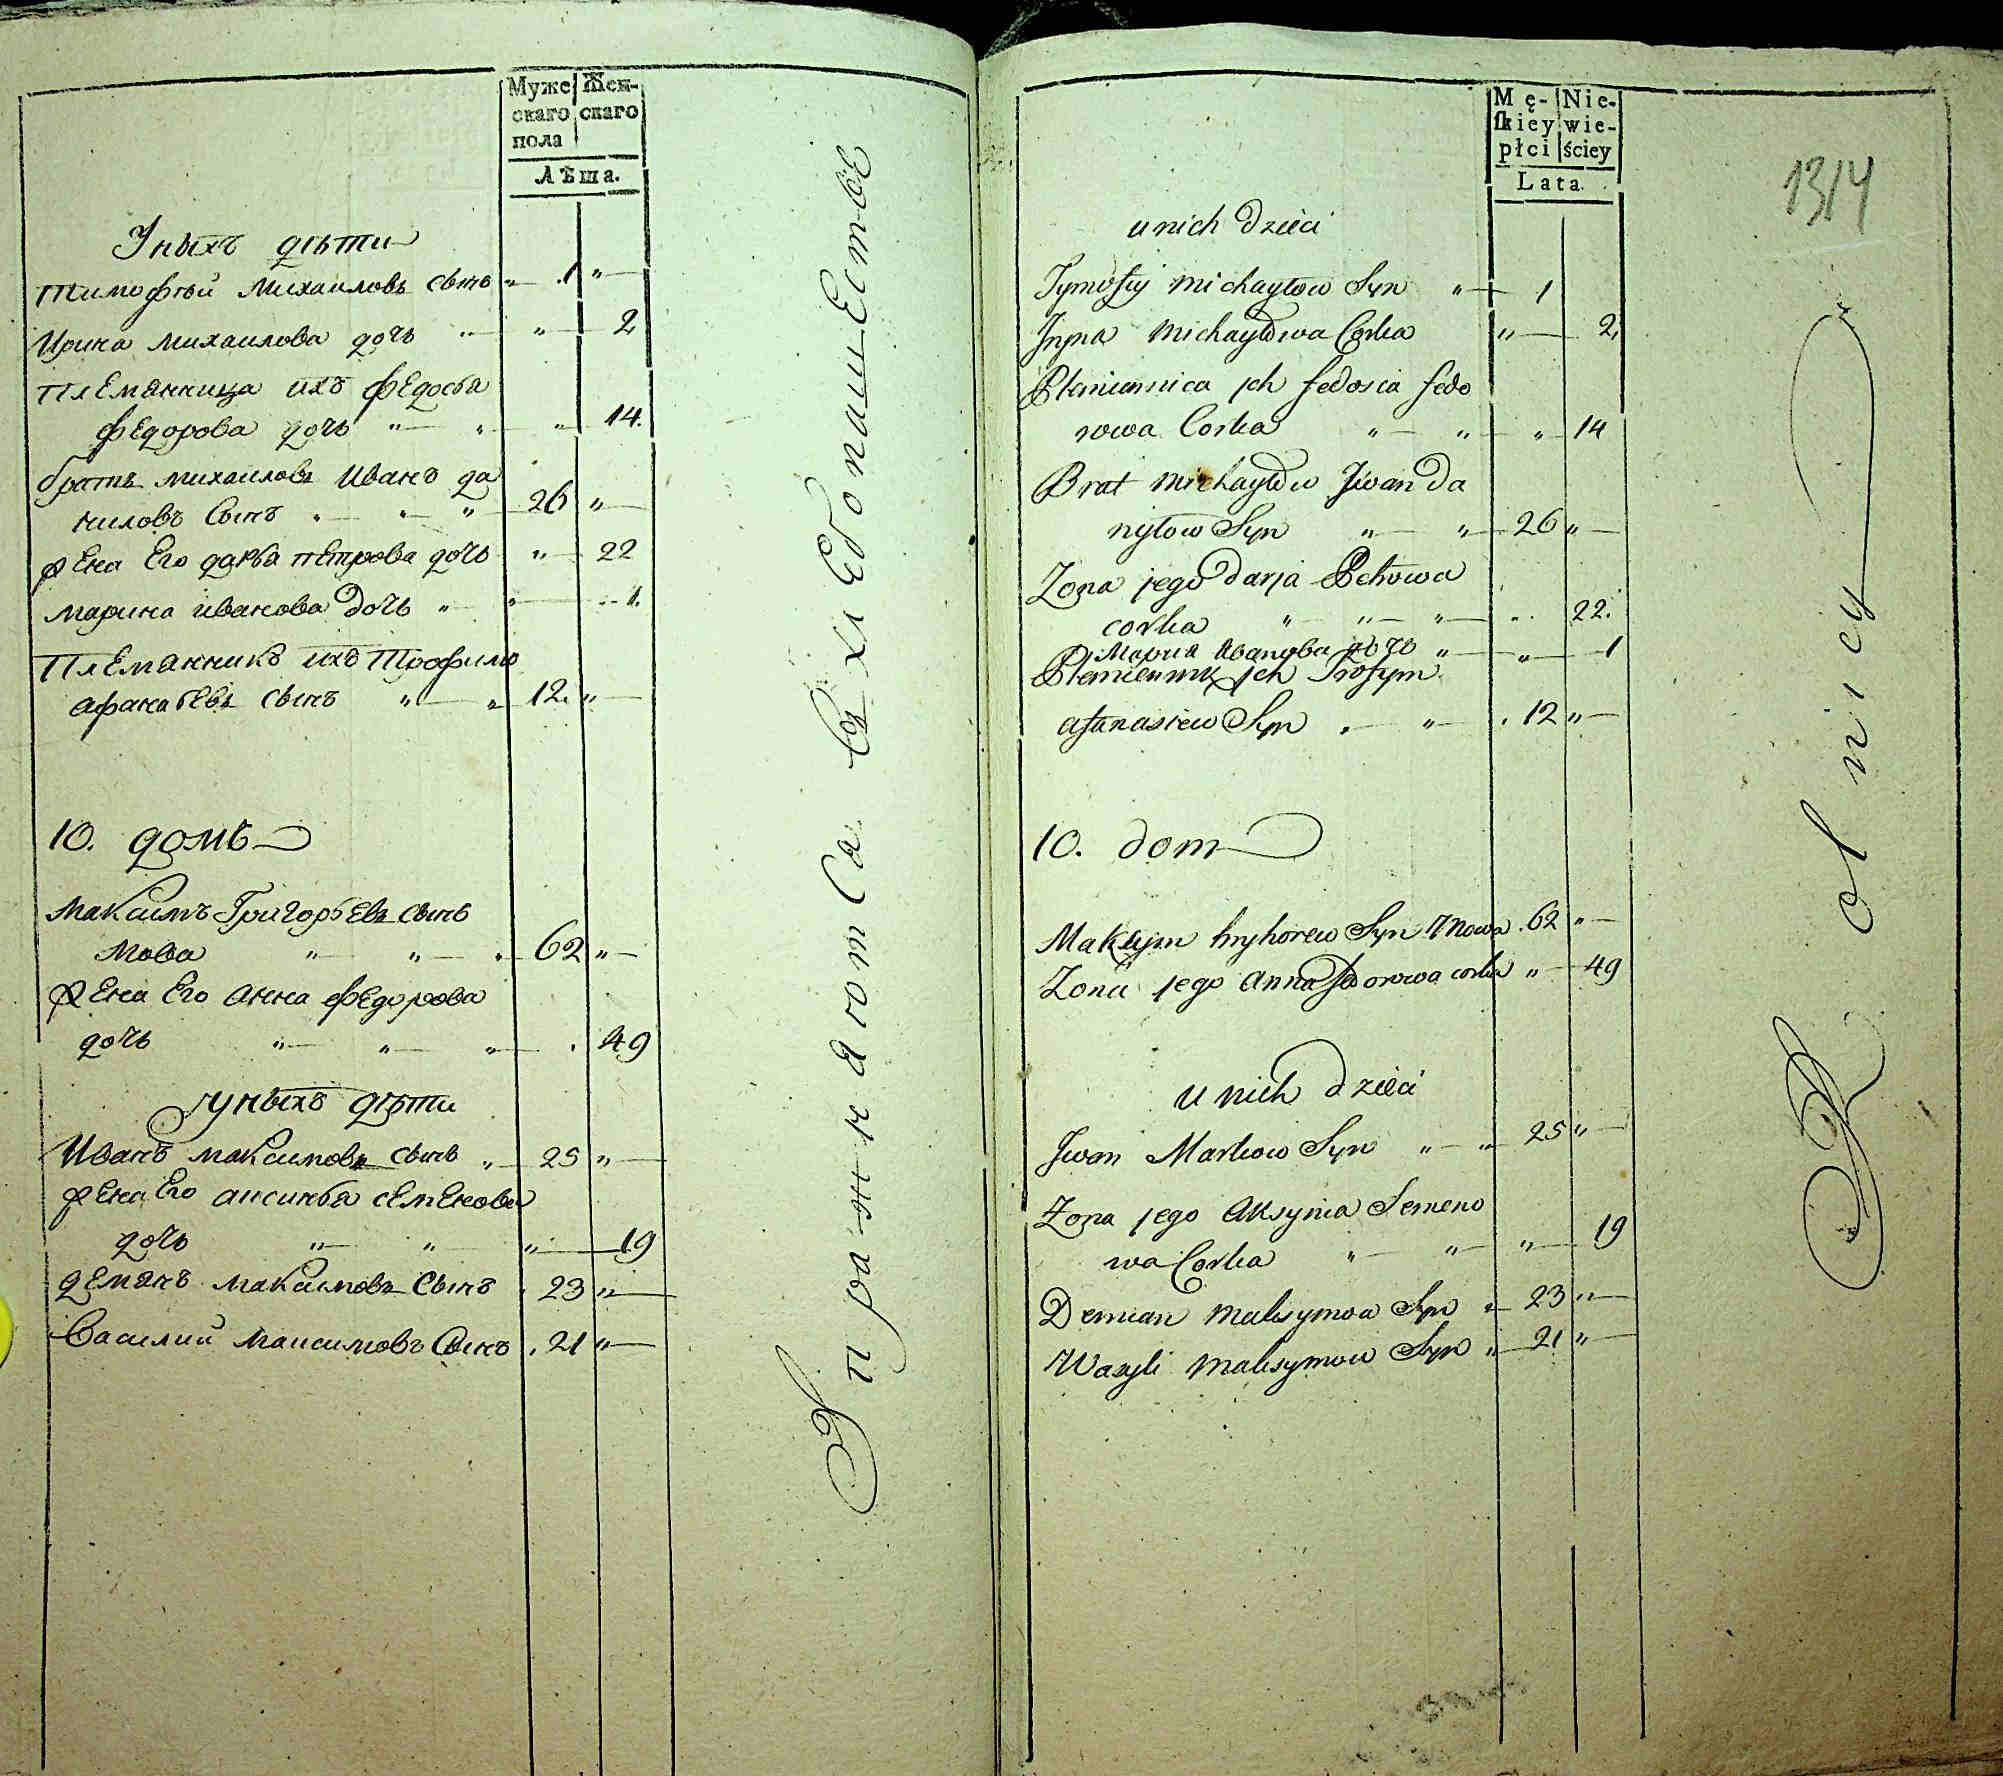 Муже Жен-
скаго скаго
пола
Лѣта.
Уныхъ дѣти
тимофѣй михаиловъ сынъ " 1 "
Ирина михаилова дочь " " 2
племянница ихъ федосья
федорова дочь " " " 14.
братъ михаиловъ иванъ да
ниловъ сынъ " " " 26 "
жена Его дарья петрова дочь " 22
марина иванова дочь " " 1.
племянникъ ихъ трофимъ
афанасьевъ сынъ " " 12. "
10. домъ
максимъ григорьевъ сынъ
мова " " " 62 "
жена Его анна федорова
дочь " " " . 49
уныхъ дѣти
Иванъ максимовъ сынъ " 25 "
жена Его аксинья семенова
дочь " " " 19
демянъ максимовъ сынъ . 23 "
Василий максимовъ сынъ . 21 "
Упражняютса въ хлебопашестве
Mę- Nie-
ſkiey wie-
płci ściey
Lata.
1314
u nich dzieci
Tymofiy michayłow Syn " 1
Jryna michayłowa Corka " 2
Plemiennica jch fedosia fedo
rowa Corka " " " 14
Brat michayłow Jwan Da
nyłow Syn " " 26 "
Zona jego Darja Petrowa
corka " " " .. 22.
Мариа Иванова дочь " " 1
Plemiennik jch Trofym
afanasiew Syn . " . 12 "
10. dom
Maksym hryhorew Syn Mowa . 62 "
Zona jego anna fedorowa corka " 49
u nich dzieci
Jwan Markow Syn " " 25 "
Zona jego Aksynia Semeno
wa Corka " " " 19
Demian maksymow Syn " 23 "
Wasyli maksymow Syn " 21 "
Rolnicy